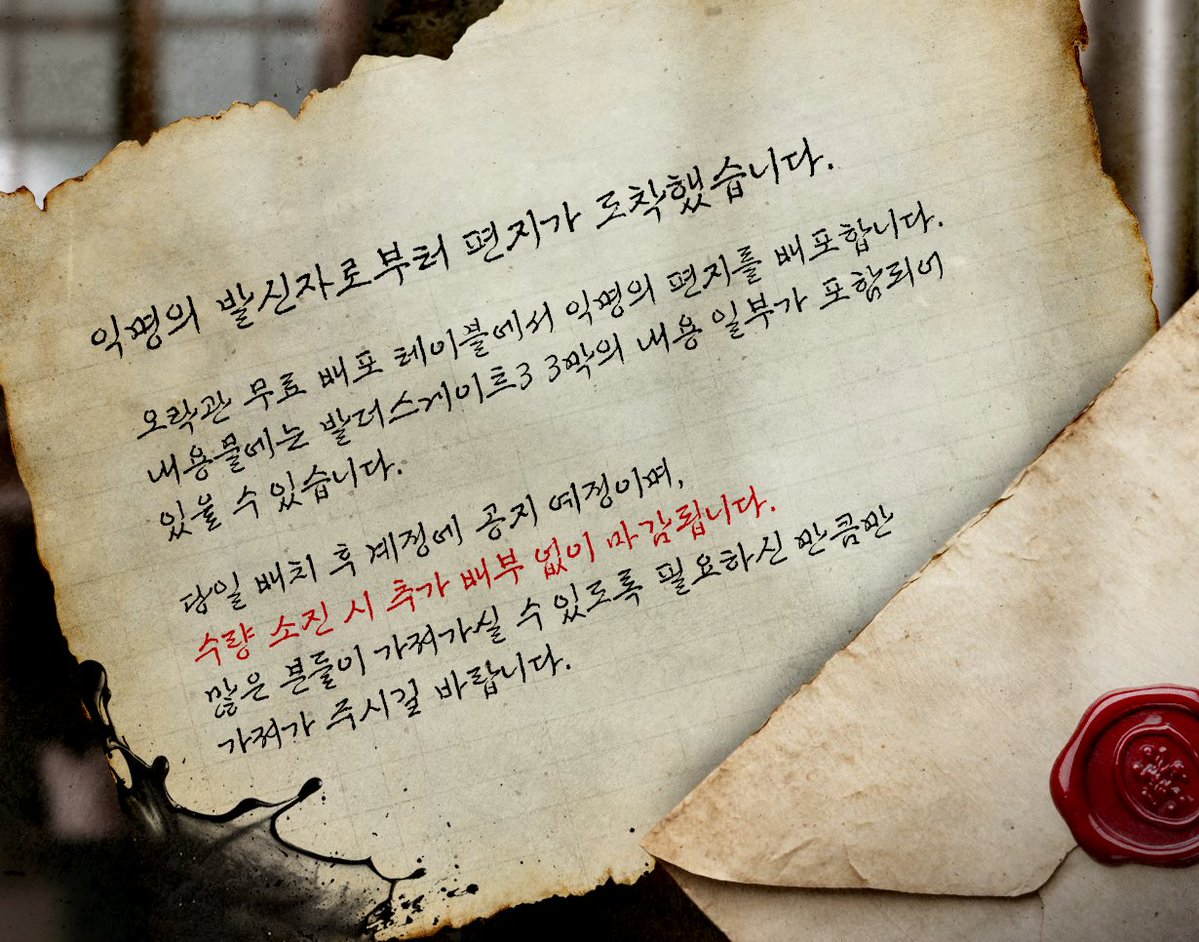 익명의 발신자로부터 편지가 도착했습니다.
오락관 무료 배포 테이블에서 익명의 편지를 배포합니다.
내용물에는 발더스게이트3 3막의 내용 일부가 포함되어
있을 수 있습니다.
당일 배치 후 계정에 공지 예정이며,
수량 소진 시 추가 배부 없이 마감됩니다.
많은 분들이 가져가실 수 있도록 필요하신 만큼만
가져가 주시길 바랍니다.